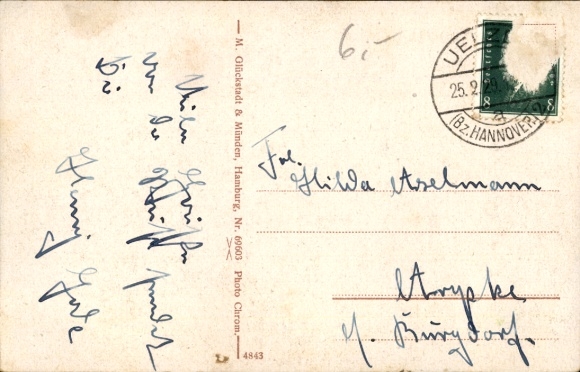 Viele Grüße
von der
sendet
Die
Henny
6,-
M. Glückstadt & Münden, Hamburg, Nr. 69603 Photo Chrom.
4843
UEL
25. 2. 29.
(Bz. HANNOVER) 2
8 8
Frl.
Hilda Aselmann
Arpke
b. Burgdorf.